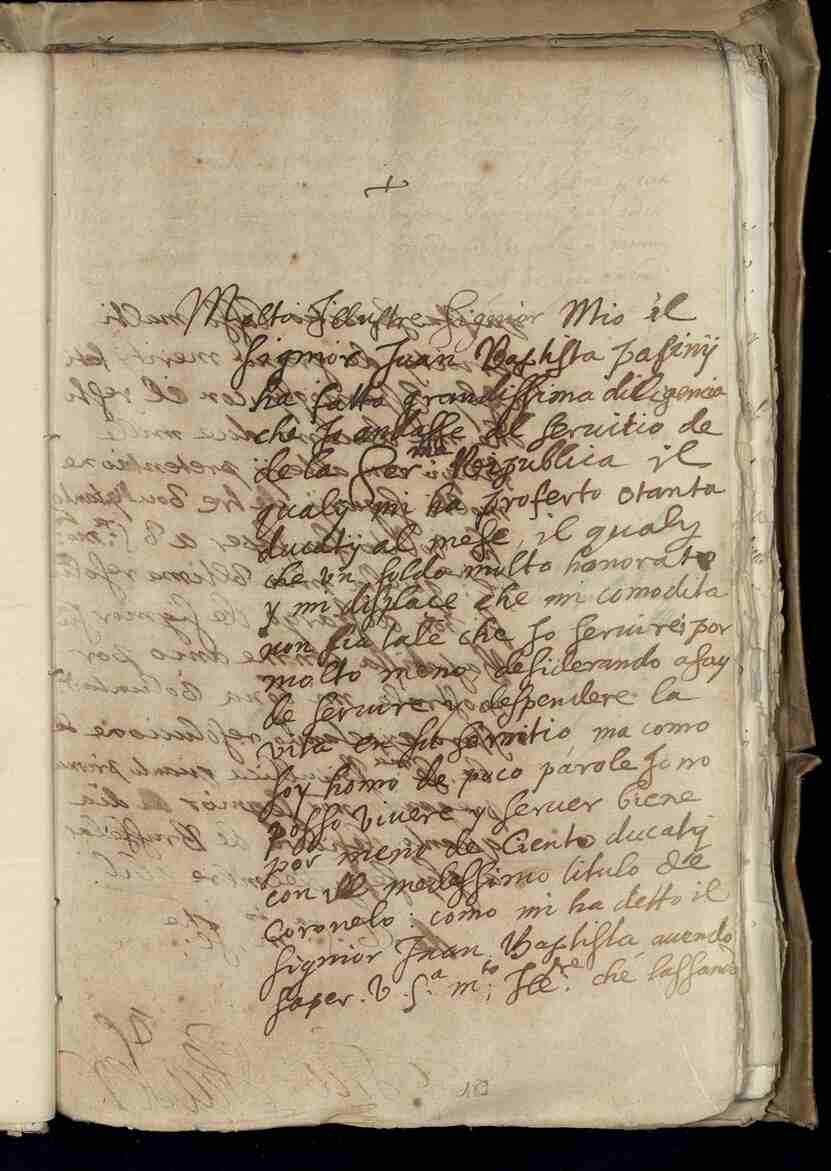 +
Molto Illustre Signior Mio il
Signior Juan Baptista Pasinÿ
ha fatto grandissima diligencia
che Jo andasse al servitio de
de la Ser.ma Reipublica il
qualy mi ha proferto otanta
ducatÿ al mese, il qualy
che un soldo molto honorato
y mi displace che mi comodita
non sia tale che Jo servire, por
molto meno desiderando asay
de servire y despendere la
vita en su servitio ma como
soy homo de poco parole Jo no
posso vivere y server biene
por meno de Ciento ducatÿ
con il medessimo titulo de
Coronelo: como mi ha detto il
Signior Juan Baptista avendo
saper. V. S.a m.to; Ill.re che lassando
10